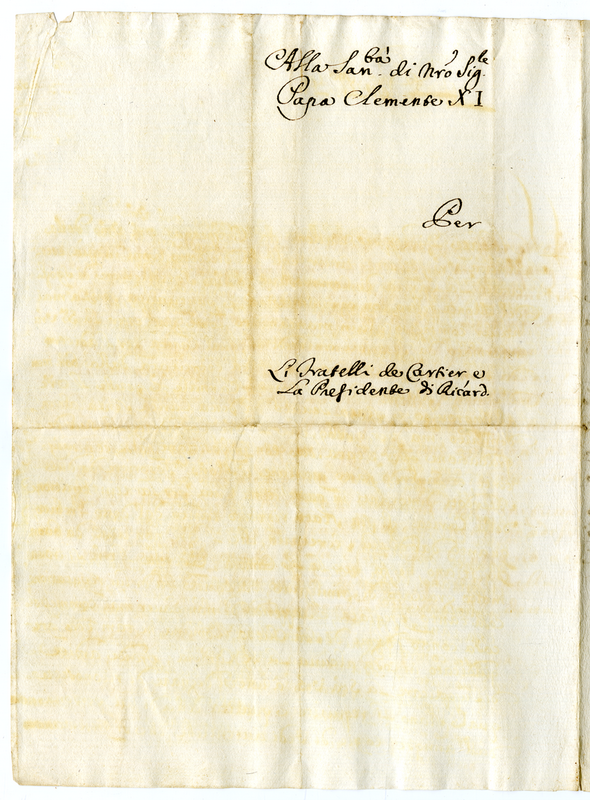 Alla San.bà di Nrõ Sig.le
Papa Clemente XI
Per
Li Fratelli de Cartier e
La Presidente di Ricard.